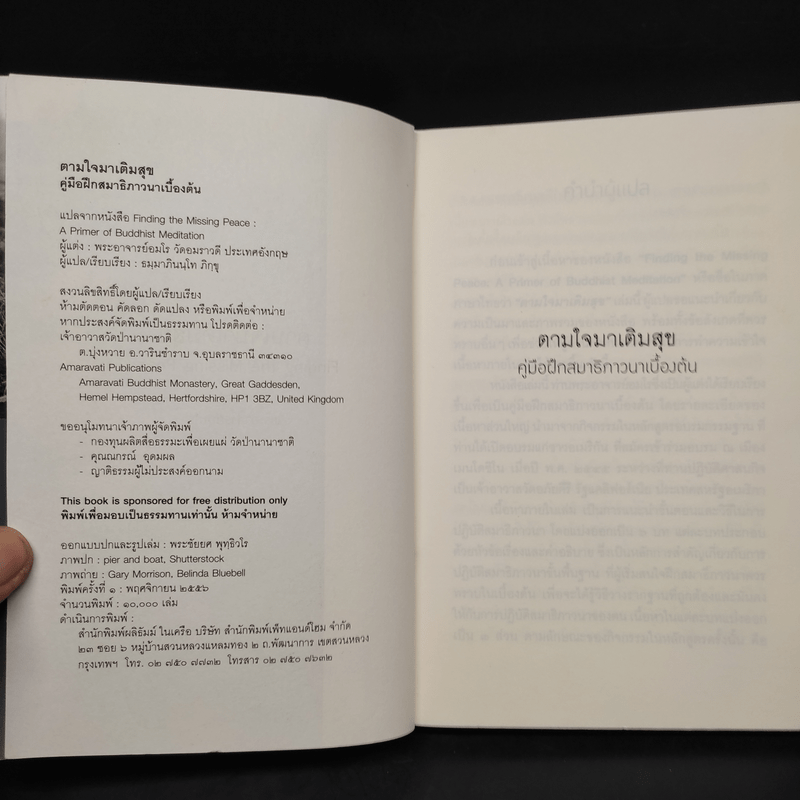 ตามใจมาเติมสุข
คู่มือฝึกสมาธิภาวนาเบื้องต้น
แปลจากหนังสือ Finding the Missing Peace :
A Primer of Buddhist Meditation
ผู้แต่ง : พระอาจารย์อมโร วัดอมราวดี ประเทศอังกฤษ
ผู้แปล/เรียบเรียง : ธมฺมาภินนฺโท ภิกฺขุ
สงวนลิขสิทธิ์โดยผู้แปล/เรียบเรียง
ห้ามตัดตอน คัดลอก ดัดแปลง หรือพิมพ์เพื่อจำหน่าย
หากประสงค์จัดพิมพ์เป็นธรรมทาน โปรดติดต่อ :
เจ้าอาวาสวัดป่านานาชาติ
ต.บุ่งหวาย อ.วารินชำราบ จ.อุบลราชธานี ๓๔๓๑๐
Amaravati Publications
Amaravati Buddhist Monastery, Great Gaddesden,
Hemel Hempstead, Hertfordshire, HP1 3BZ, United Kingdom
ขออนุโมทนาเจ้าภาพผู้จัดพิมพ์
- กองทุนผลิตสื่อธรรมะเพื่อเผยแผ่ วัดป่านานาชาติ
- คุณณกรณ์ อุดมผล
- ญาติธรรมผู้ไม่ประสงค์ออกนาม
This book is sponsored for free distribution only
พิมพ์เพื่อมอบเป็นธรรมทานเท่านั้น ห้ามจำหน่าย
ออกแบบปกและรูปเล่ม : พระชัยยศ พุทฺธิวโร
ภาพปก : pier and boat, Shutterstock
ภาพถ่าย : Gary Morrison, Belinda Bluebell
พิมพ์ครั้งที่ ๑ : พฤศจิกายน ๒๕๕๖
จำนวนพิมพ์ : ๑๐,๐๐๐ เล่ม
ดำเนินการพิมพ์ :
สำนักพิมพ์ผลิธัมม์ ในเครือ บริษัท สำนักพิมพ์เพ็ทแอนด์โฮม จำกัด
๒๓ ซอย ๖ หมู่บ้านสวนหลวงแหลมทอง ๒ ถ.พัฒนาการ เขตสวนหลวง
กรุงเทพฯ โทร. ๐๒ ๗๕๐ ๗๗๓๒ โทรสาร ๐๒ ๗๕๐ ๗๖๓๒
ตามใจมาเติมสุข
คู่มือฝึกสมาธิภาวนาเบื้องต้น